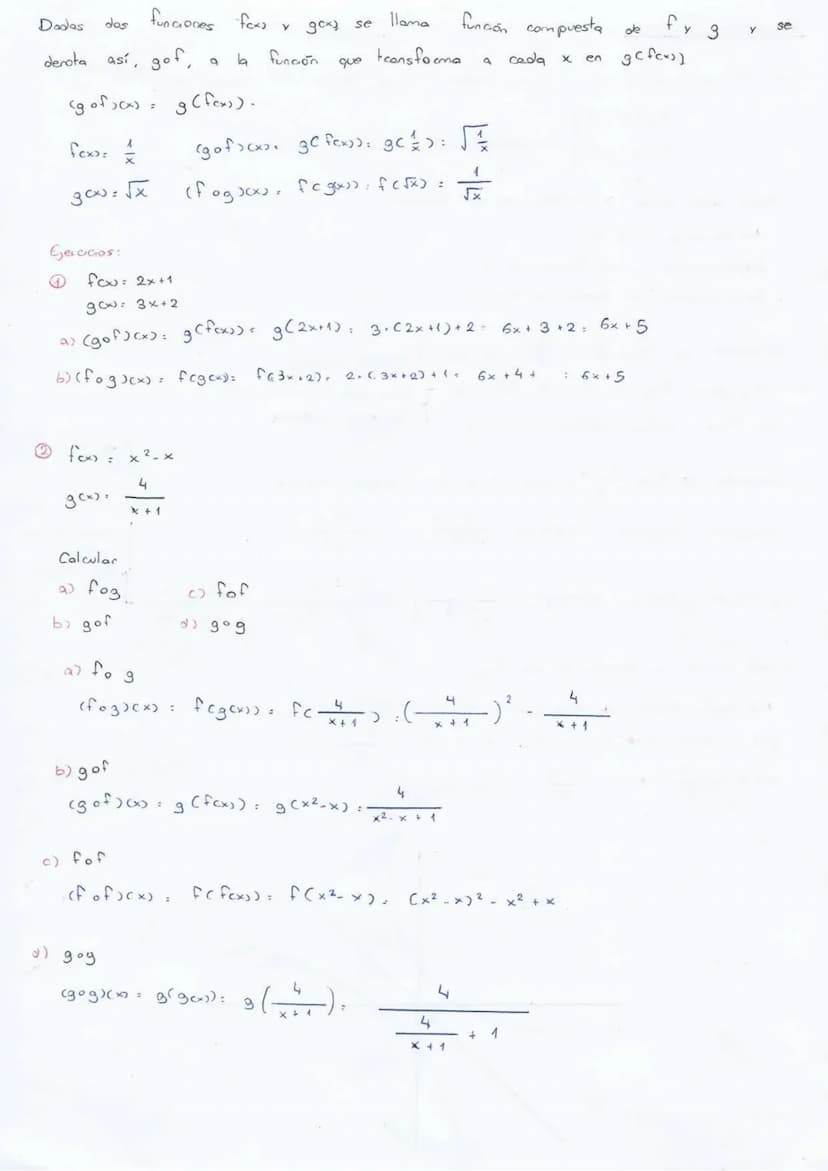 Dadas dos funciones f(x) y g(x) se llama función compuesta de f y g y se
denota así, gof, a la función que transforma a cada x en g(f(x))
(gof)(x) = g(f(x)).
f(x) = 1/x (gof)(x) = g(f(x)) = g(1/x) = √(1/x)
g(x) = √x (fog)(x) = f(g(x)) = f(√x) = 1/√x
Ejercicios:
① f(x) = 2x+1
g(x) = 3x+2
a) (gof)(x) = g(f(x)) = g(2x+1) = 3·(2x+1)+2 = 6x+3+2 = 6x+5
b) (fog)(x) = f(g(x)) = f(3x+2) = 2·(3x+2)+1 = 6x+4+ = 6x+5
② f(x) = x²-x
g(x) = 4/(x+1)
Calcular
a) fog c) fof
b) gof d) gog
a) fo g
(fog)(x) = f(g(x)) = f(4/(x+1)) = (4/(x+1))² - 4/(x+1)
b) gof
(gof)(x) = g(f(x)) = g(x²-x) = 4/(x²-x+1)
c) fof
(fof)(x) = f(f(x)) = f(x²-x) = (x²-x)² - x² + x
d) gog
(gog)(x) = g(g(x)) = g(4/(x+1)) = 4/(4/(x+1) + 1)